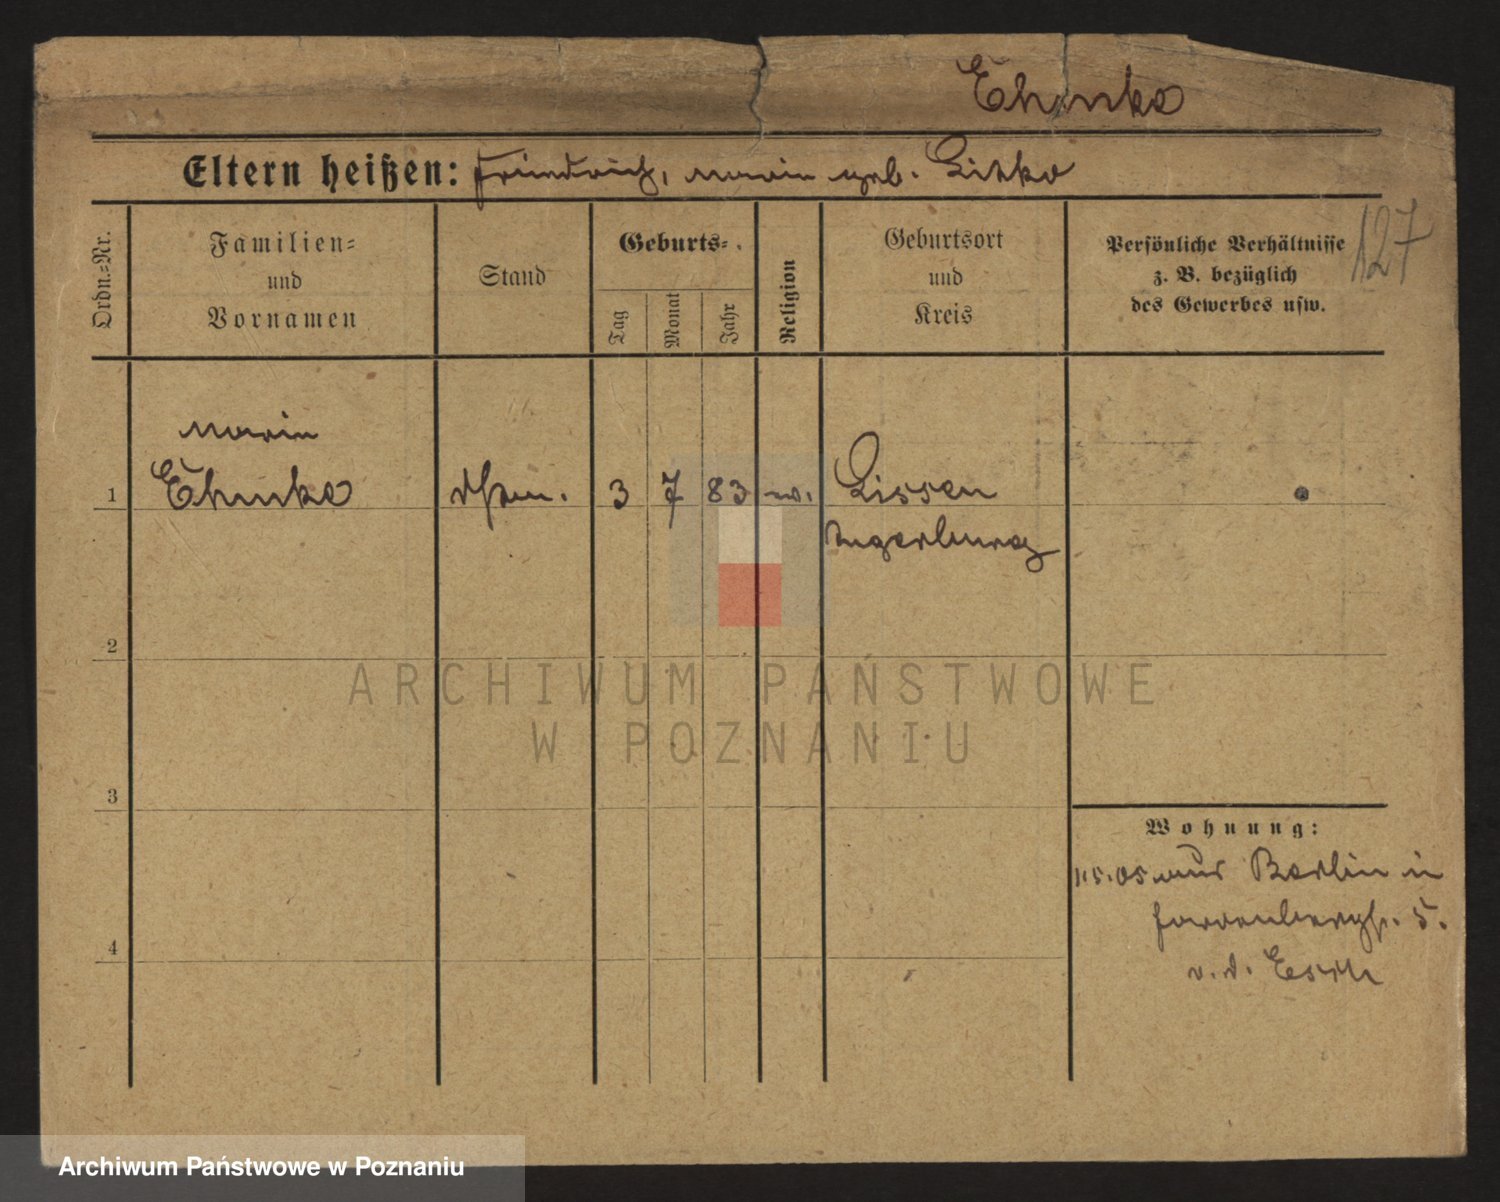 Ehmke
Eltern heißen: Friedrich, Marie geb. Lisko
127
Ordn.-Nr.
Familien-
und
Vornamen
Stand
Geburts-
Tag
Monat
Jahr
Religion
Geburtsort
und
Kreis
Persönliche Verhältnisse
z. B. bezüglich
des Gewerbes usw.
Marie
1 Ehmke 3 7 83 Lissen
Angerburg
2
3
4
Wohnung:
1.5.05 aus Berlin in
5.
v. d. Esch
ARCHIWUM PAŃSTWOWE
W POZNANIU
Archiwum Państwowe w Poznaniu